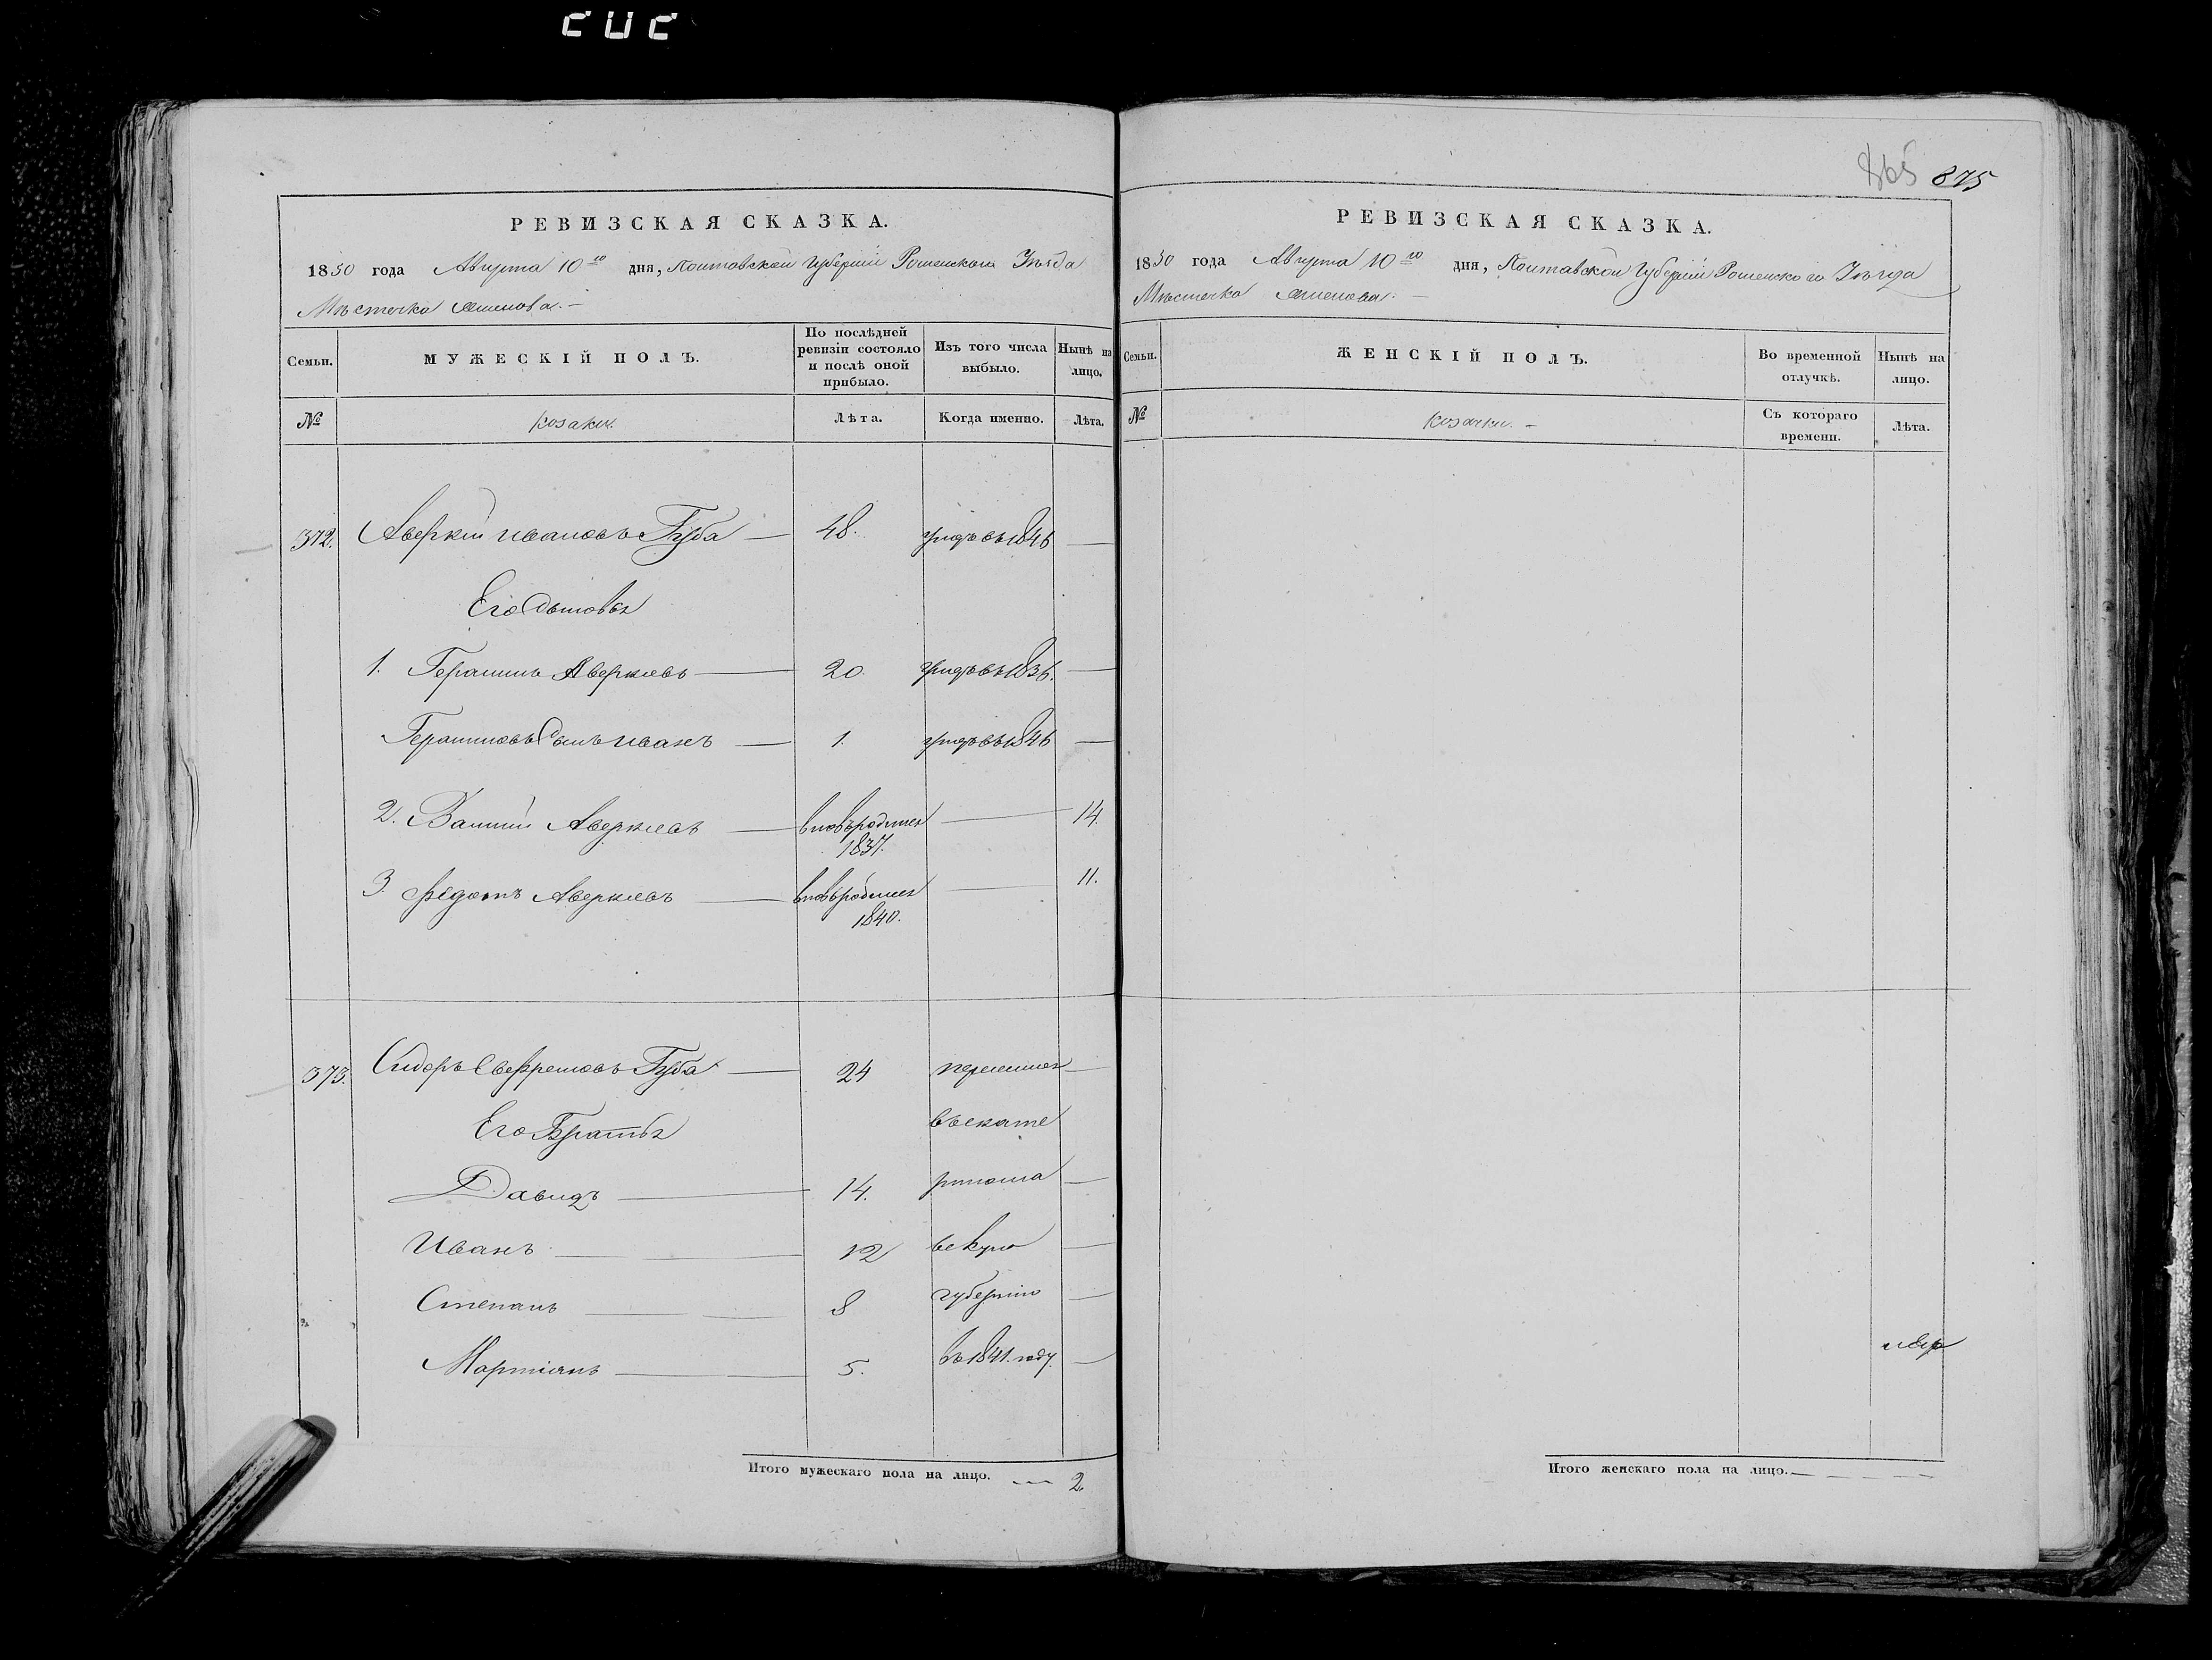 865 875
РЕВИЗСКАЯ СКАЗКА.
1850 года Августа 10го дня, Полтавской Губерніи Роменского Уѣзда
Мѣстечка Смелова.—
Семьи. МУЖЕСКІЙ ПОЛЪ. По послѣдней ревизіи состояло и послѣ оной прибыло. Изъ того числа выбыло. Нынѣ на лицо.
№ Козаки. Лѣта. Когда именно. Лѣта.
372. Аверкій Ивановъ Губа — 48. умеръ въ 1846 —
Его Сыновья
1. Герасимъ Аверкіевъ — 20. умеръ въ 1836. —
Герасимовъ Сынъ Иванъ — 1. умеръ въ 1846 —
2. Василій Аверкіевъ — вновьродился — 14.
1837.
3 Федотъ Аверкіевъ — вновьродился — 11.
1840.
373. Сидоръ Евфремовъ Губа — 24 переселился —
Его Братья въ екате
Давидъ — 14. —
Иванъ — 12 —
Степанъ — 8 губернію —
Мартіянъ — 5. въ 1841. году. —
Итого мужескаго пола на лицо. — 2.
РЕВИЗСКАЯ СКАЗКА.
1850 года Августа 10го дня, Полтавской Губерніи Роменского Уѣзда
Мѣстечка Смелова.—
Семьи. ЖЕНСКІЙ ПОЛЪ. Во временной отлучкѣ. Нынѣ на лицо.
№ Козачки.— Съ котораго времени. Лѣта.
Итого женскаго пола на лицо.—